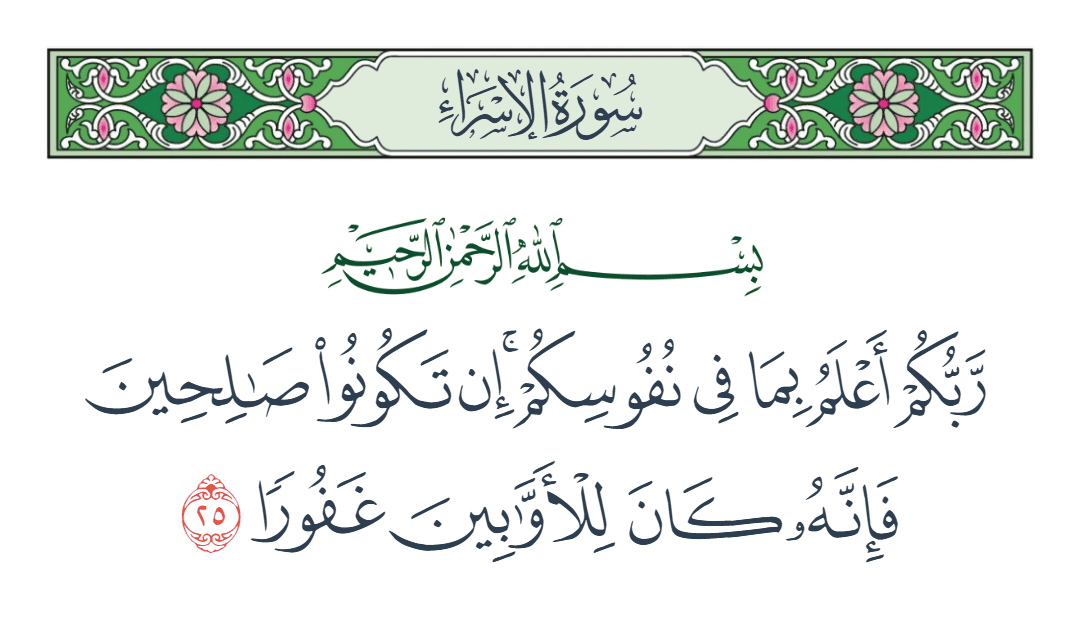 سُورَةُ الإِسْرَاءِ
بِسْمِ ٱللَّهِ ٱلرَّحْمَٰنِ ٱلرَّحِيمِ
رَّبُّكُمْ أَعْلَمُ بِمَا فِى نُفُوسِكُمْ ۚ إِن تَكُونُوا۟ صَـٰلِحِينَ
فَإِنَّهُۥ كَانَ لِلْأَوَّٰبِينَ غَفُورًا ٢٥